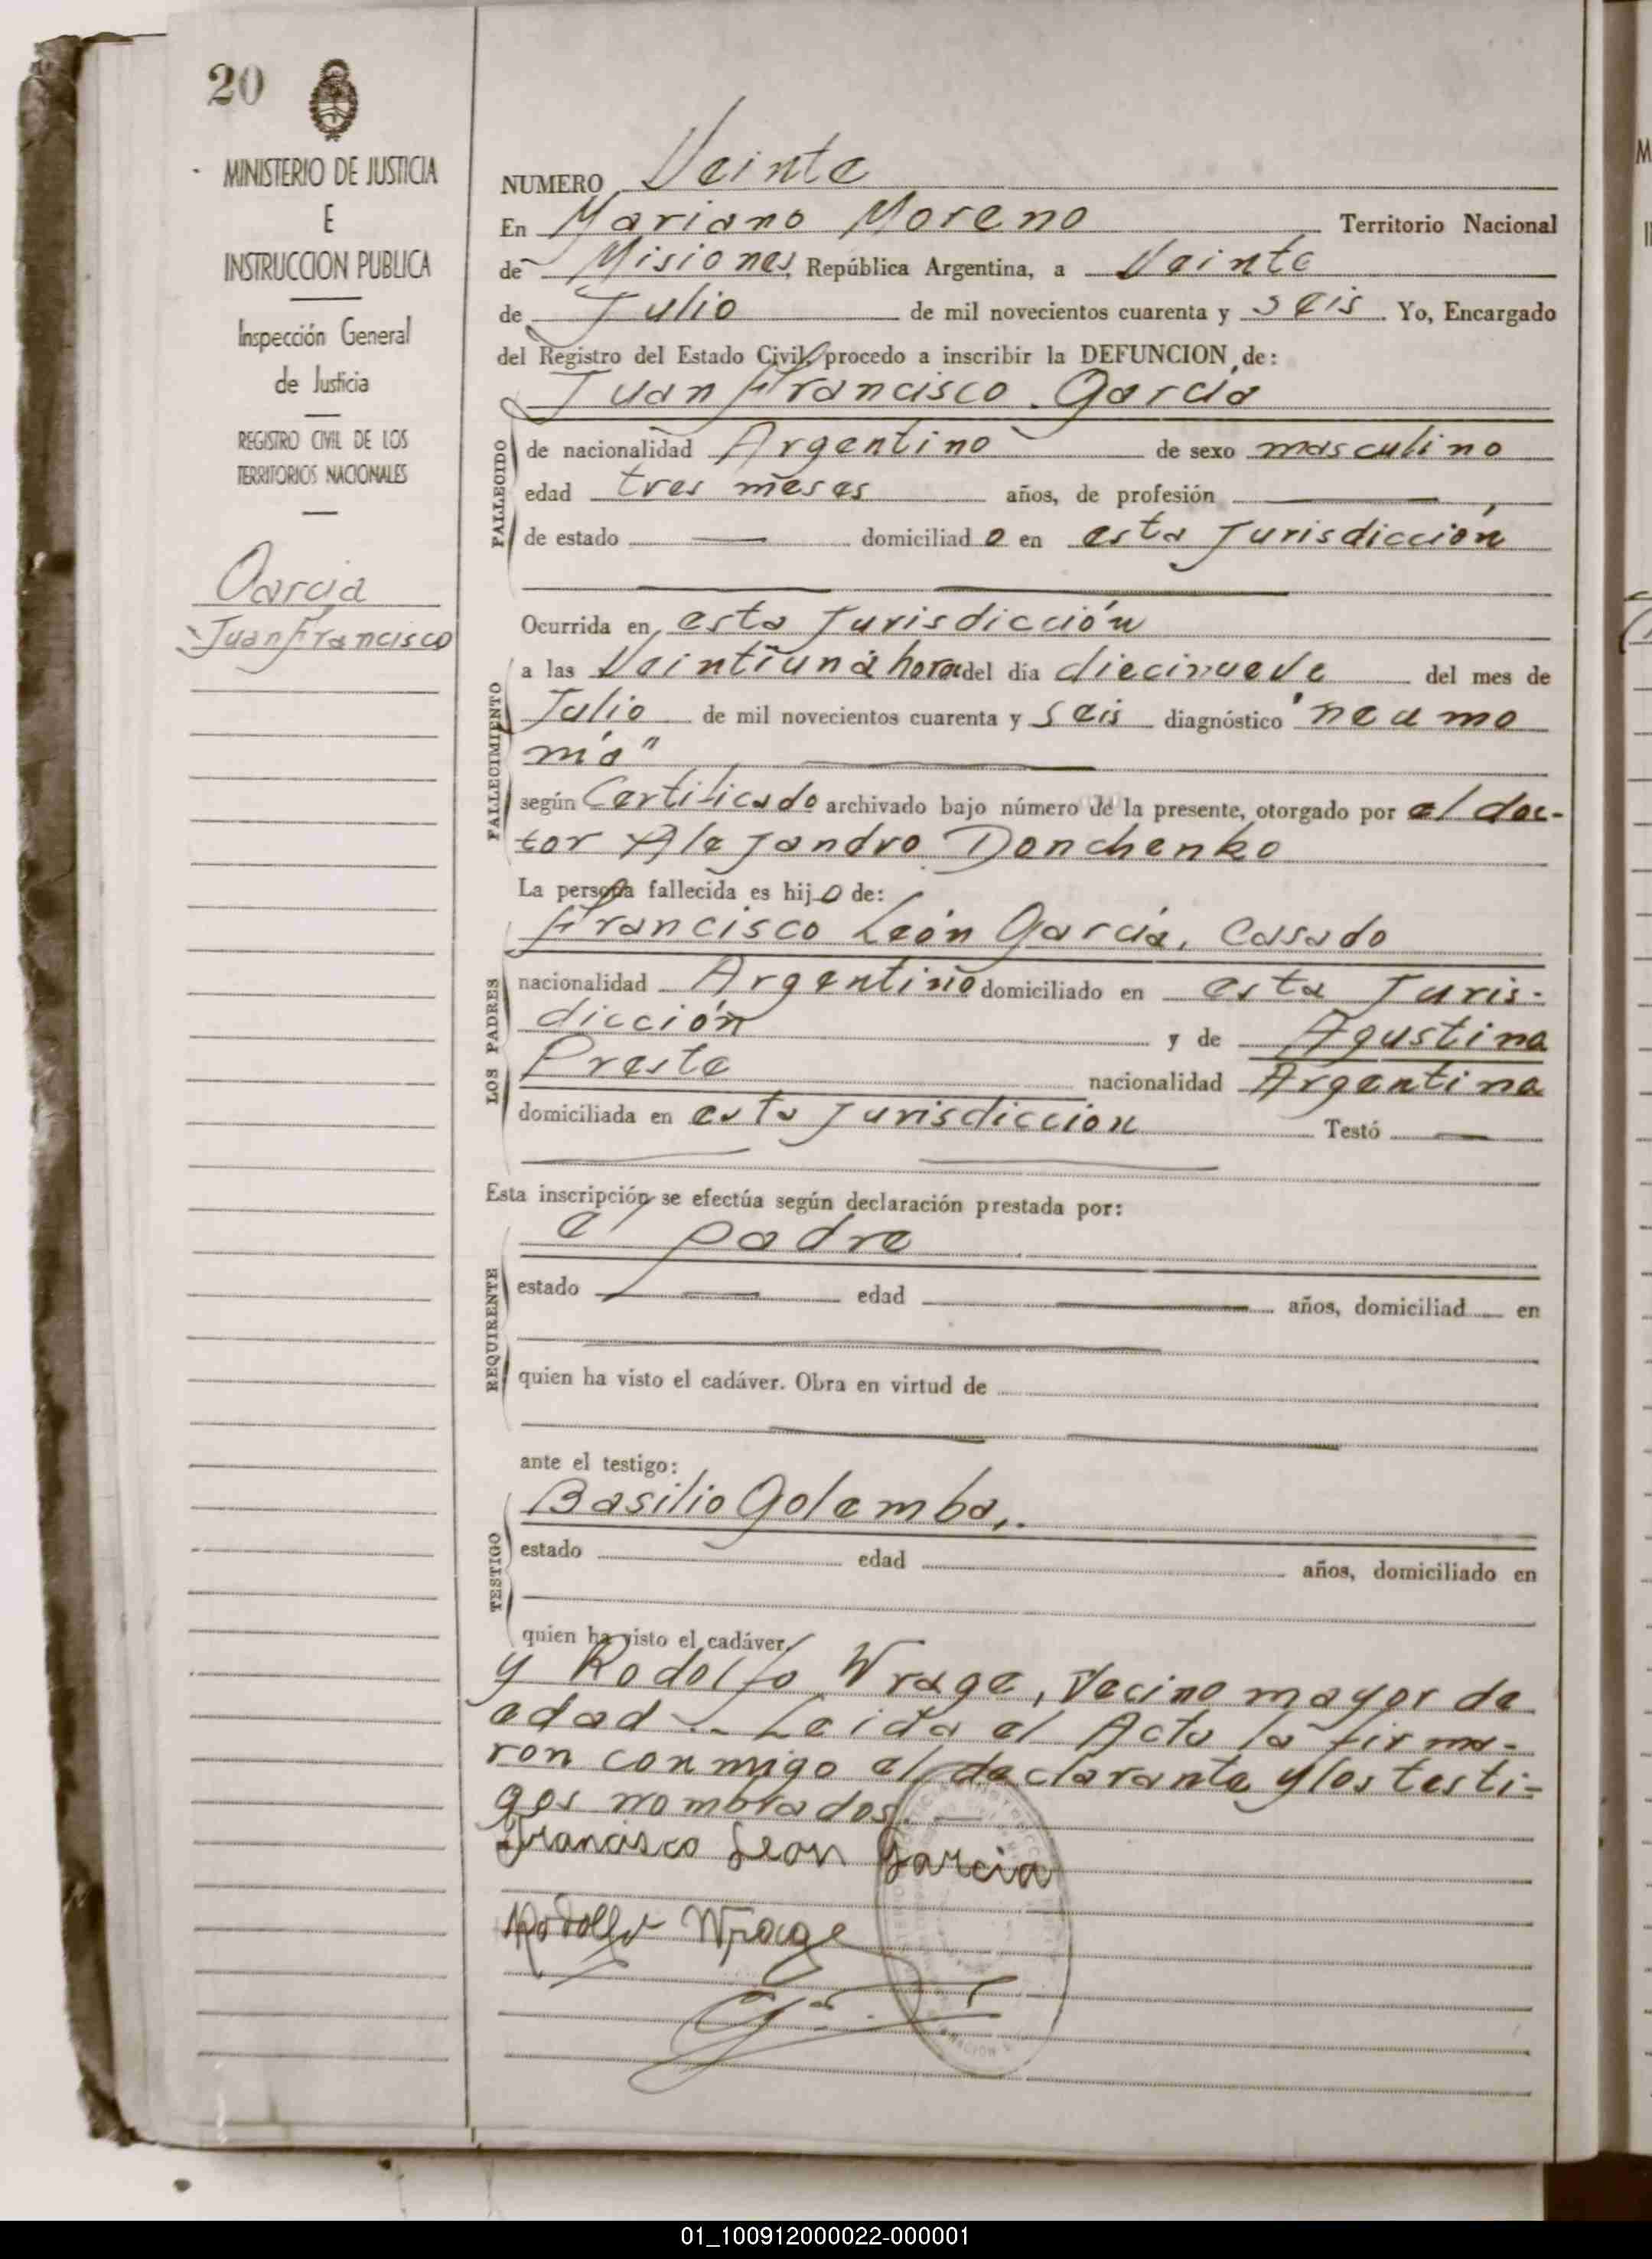 20
MINISTERIO DE JUSTICIA
E
INSTRUCCION PUBLICA
Inspección General
de Justicia
REGISTRO CIVIL DE LOS
TERRITORIOS NACIONALES
Garcia
Juan Francisco
NUMERO Veinte
En Mariano Moreno Territorio Nacional
de Misiones, República Argentina, a Veinte
de Julio de mil novecientos cuarenta y seis. Yo, Encargado
del Registro del Estado Civil, procedo a inscribir la DEFUNCION de:
Juan Francisco García
FALLECIDO
de nacionalidad Argentino de sexo masculino
edad tres meses años, de profesión
de estado domiciliado en esta Jurisdicción
Ocurrida en esta Jurisdicción
FALLECIMIENTO
a las Veintiuna horas del día diecinueve del mes de
Julio de mil novecientos cuarenta y seis diagnóstico "neumo
nía"
según Certificado archivado bajo número de la presente, otorgado por el doc-
tor Alejandro Donchenko
La persona fallecida es hijo de:
Francisco León García, Casado
LOS PADRES
nacionalidad Argentino domiciliado en esta Juris-
dicción y de Agustina
Preste nacionalidad Argentina
domiciliada en esta Jurisdicción Testó
Esta inscripción se efectúa según declaración prestada por:
el padre
REQUIRENTE
estado edad años, domiciliad en
quien ha visto el cadáver. Obra en virtud de
ante el testigo:
Basilio Golemba,.
TESTIGO
estado edad años, domiciliado en
quien ha visto el cadáver
y Rodolfo Wrage, Vecino mayor de
edad.- Leida el Acta la firma-
ron conmigo el declarante y los testi-
gos nombrados.
Francisco Leon Garcia
Rodolfo Wrage
01_100912000022-000001